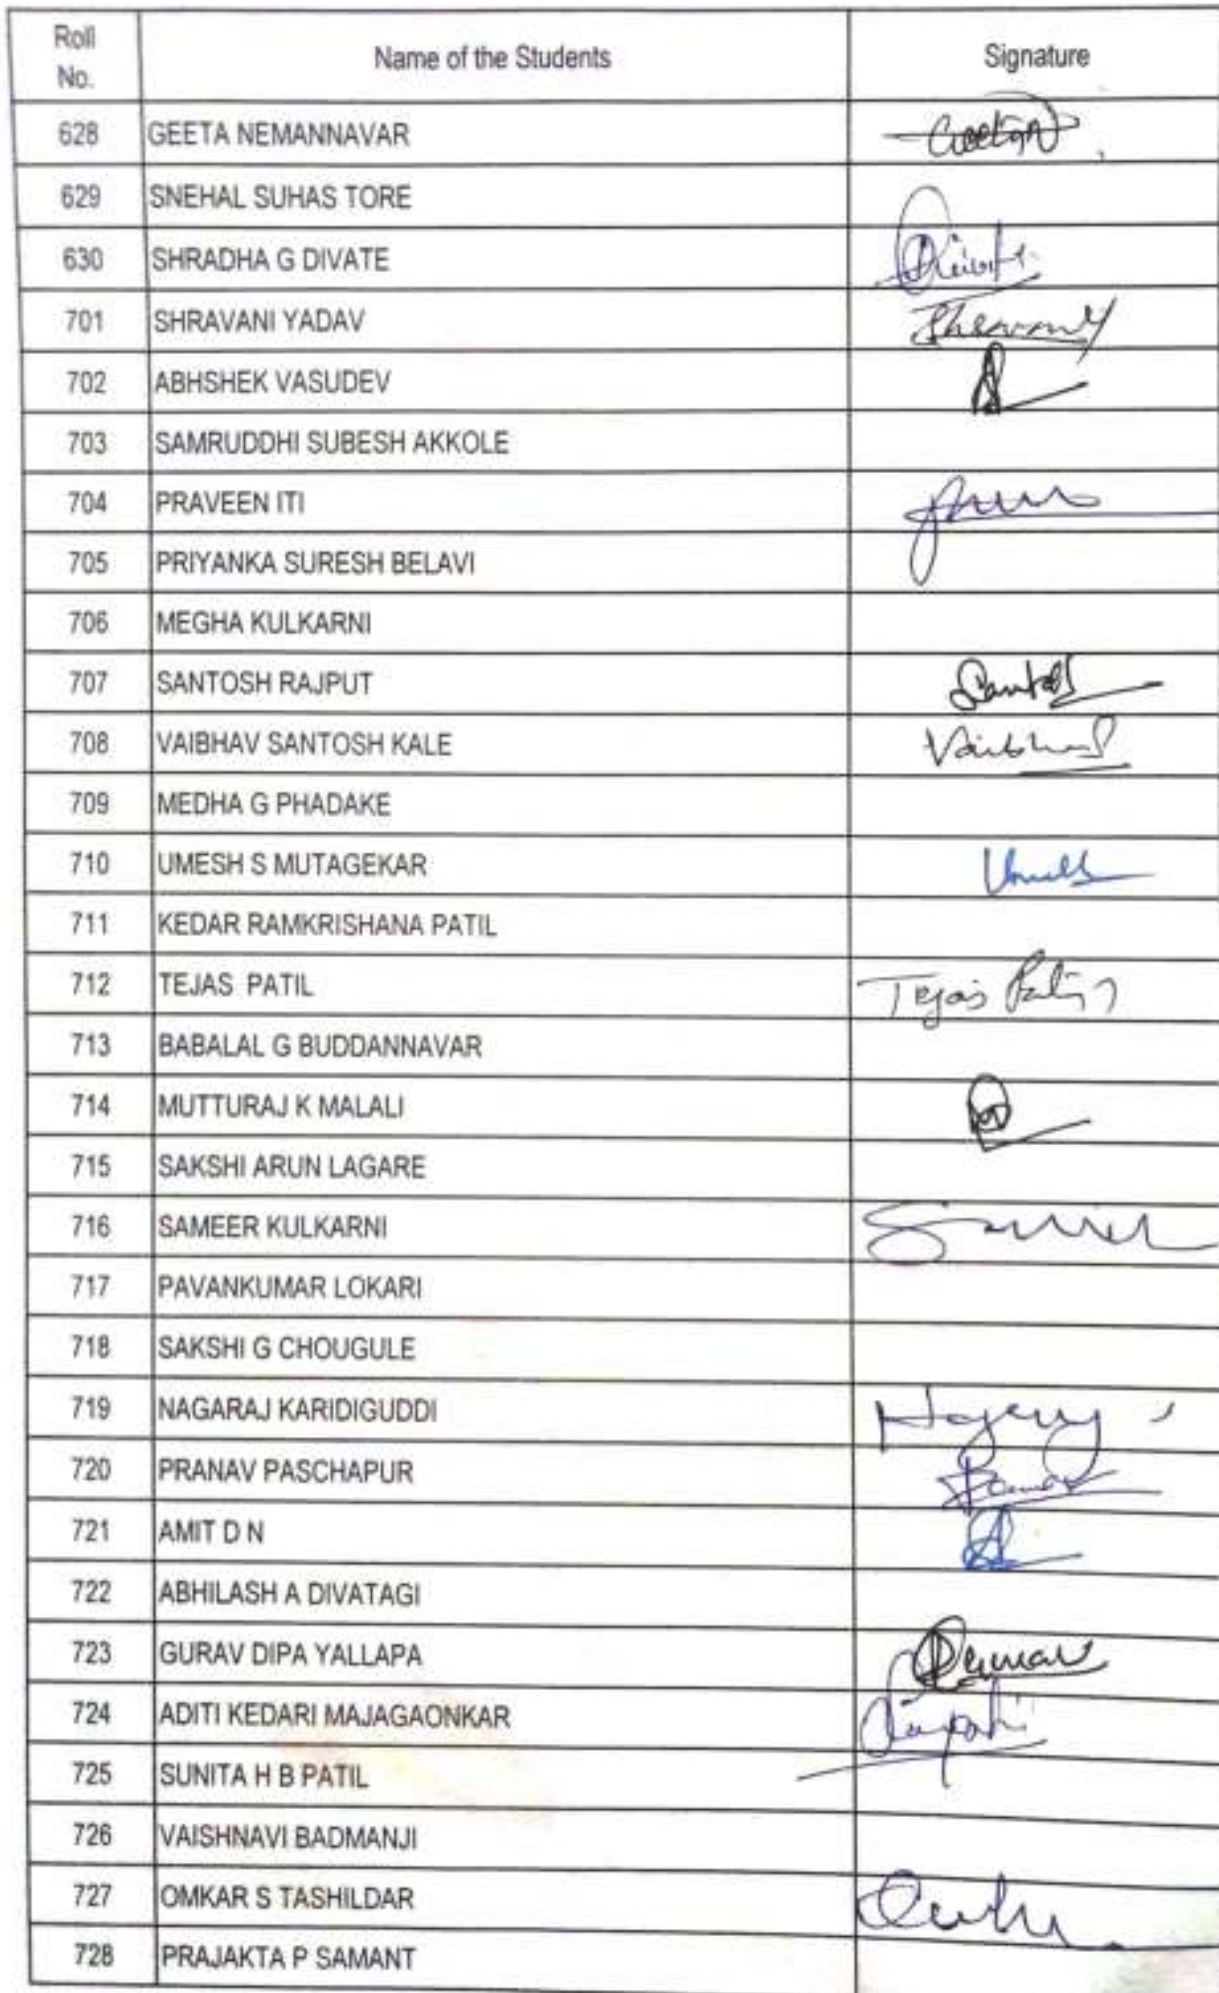 Roll No. Name of the Students Signature
628 GEETA NEMANNAVAR Geeta
629 SNEHAL SUHAS TORE
630 SHRADHA G DIVATE
701 SHRAVANI YADAV
702 ABHSHEK VASUDEV
703 SAMRUDDHI SUBESH AKKOLE
704 PRAVEEN ITI
705 PRIYANKA SURESH BELAVI
706 MEGHA KULKARNI
707 SANTOSH RAJPUT
708 VAIBHAV SANTOSH KALE Vaibhav
709 MEDHA G PHADAKE
710 UMESH S MUTAGEKAR
711 KEDAR RAMKRISHANA PATIL
712 TEJAS PATIL Tejas Patil
713 BABALAL G BUDDANNAVAR
714 MUTTURAJ K MALALI
715 SAKSHI ARUN LAGARE
716 SAMEER KULKARNI
717 PAVANKUMAR LOKARI
718 SAKSHI G CHOUGULE
719 NAGARAJ KARIDIGUDDI
720 PRANAV PASCHAPUR
721 AMIT D N
722 ABHILASH A DIVATAGI
723 GURAV DIPA YALLAPA
724 ADITI KEDARI MAJAGAONKAR
725 SUNITA H B PATIL
726 VAISHNAVI BADMANJI
727 OMKAR S TASHILDAR
728 PRAJAKTA P SAMANT